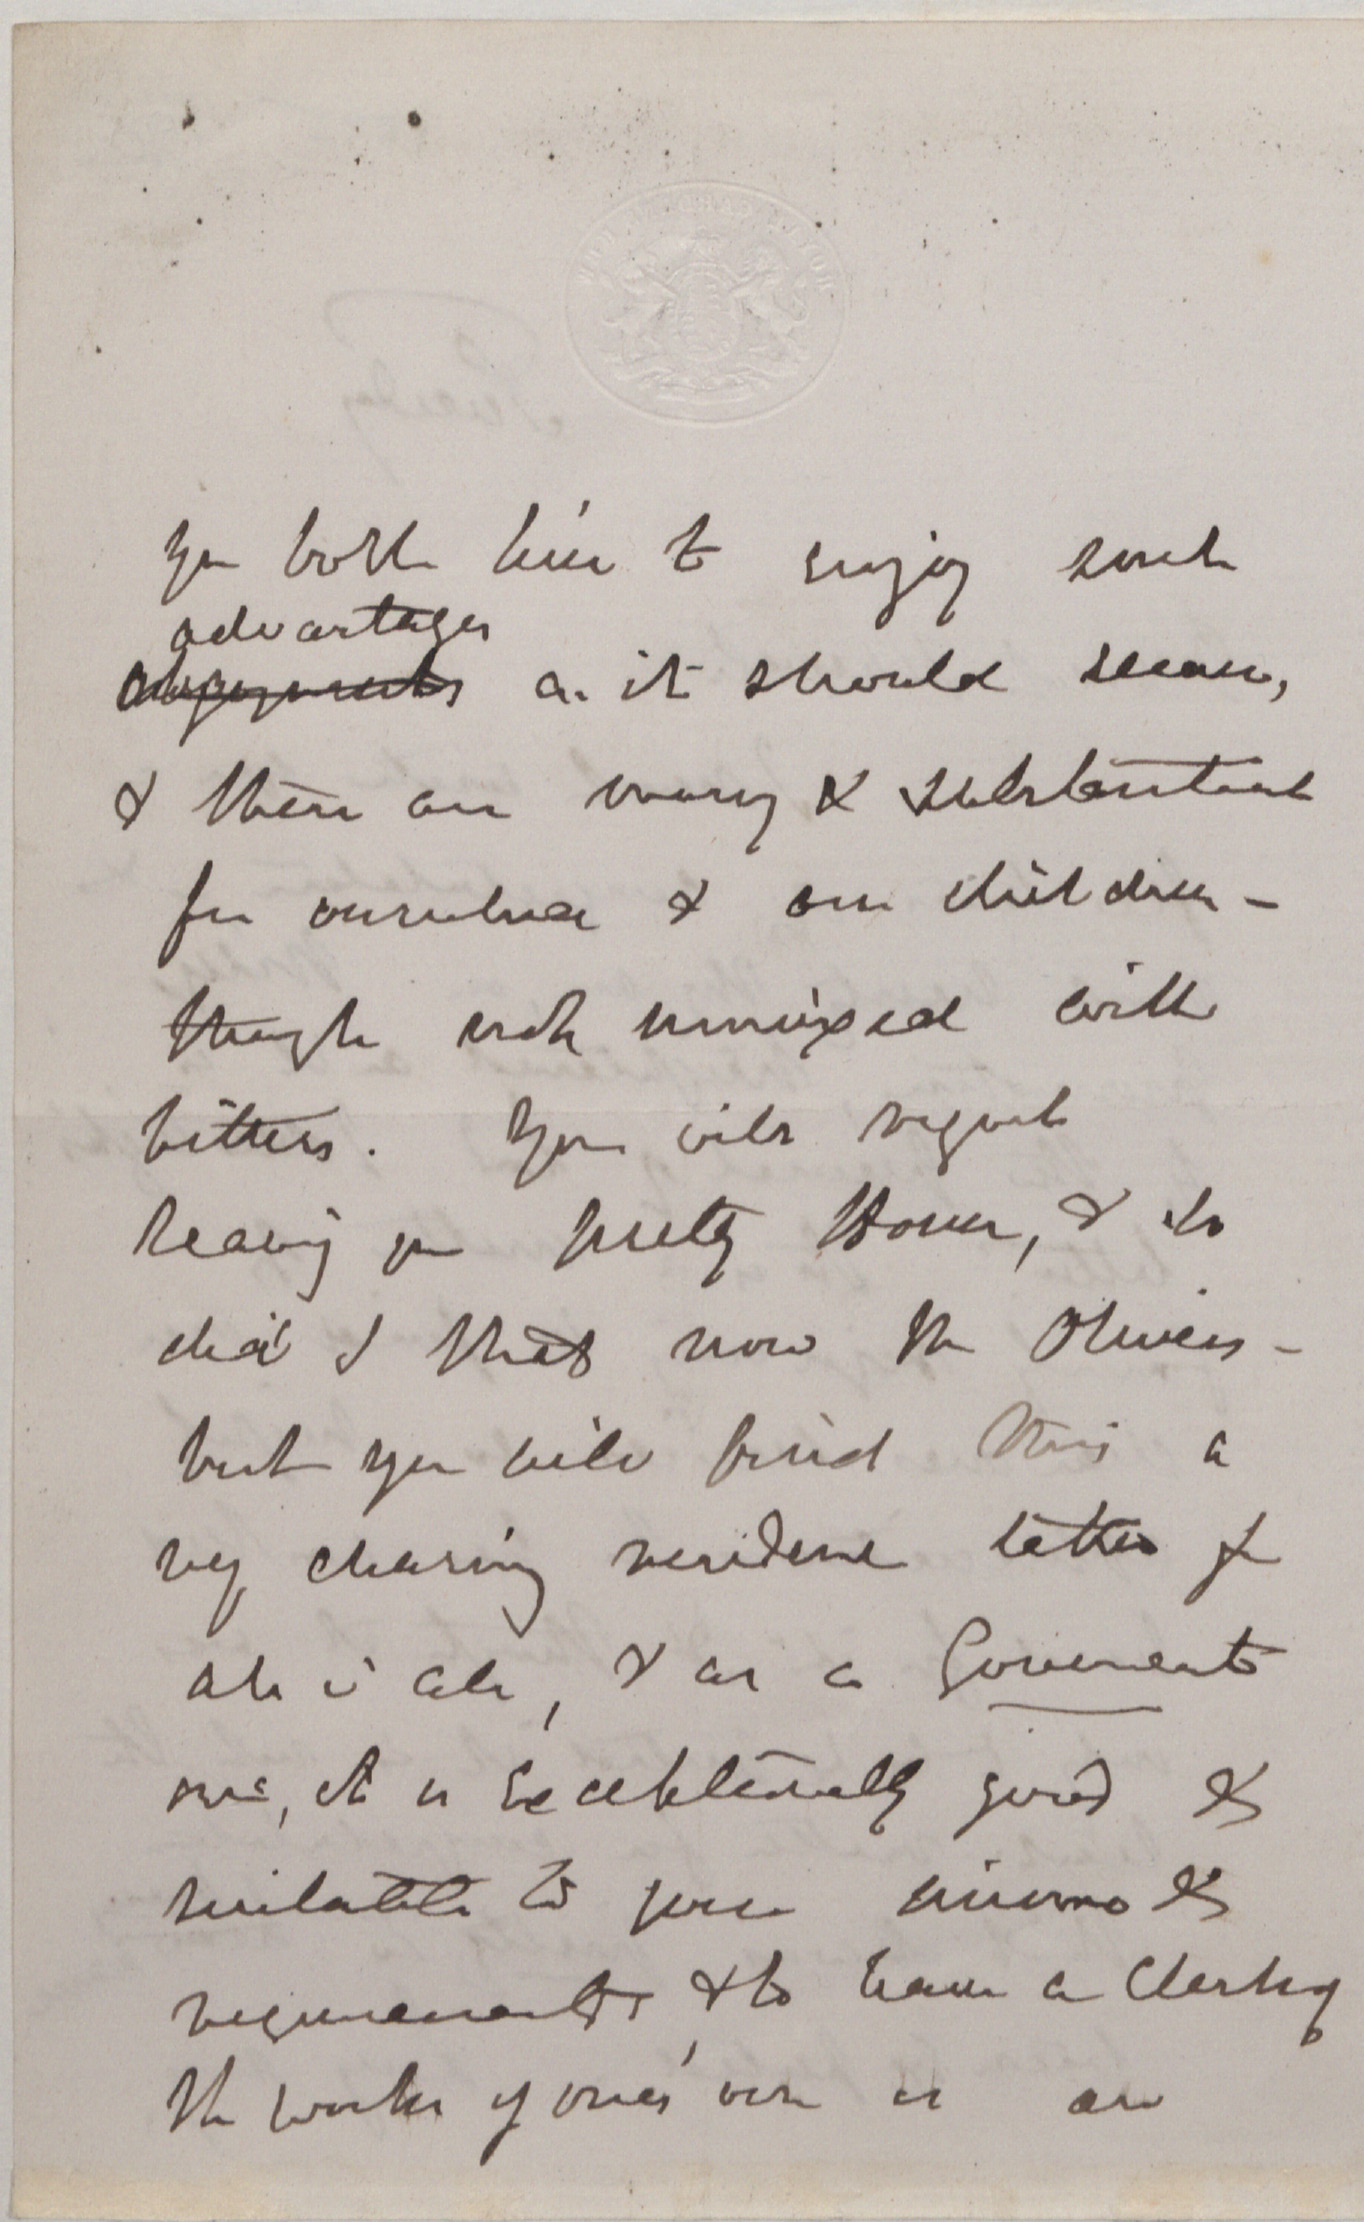 you both live to enjoy such
advantages
as it should secure,
& there are many & substantial
for ourselves & our children –
though not unmixed with
bitters. You will regret
leaving your pretty House, & so
did I that now the Oliviers –
but you will find this a
very charming residence taken for
all in all, & as a Government
one, it is exceptionally good &
suitable to your views &
requirements, & to have a Clerk of
the works of one's own is an